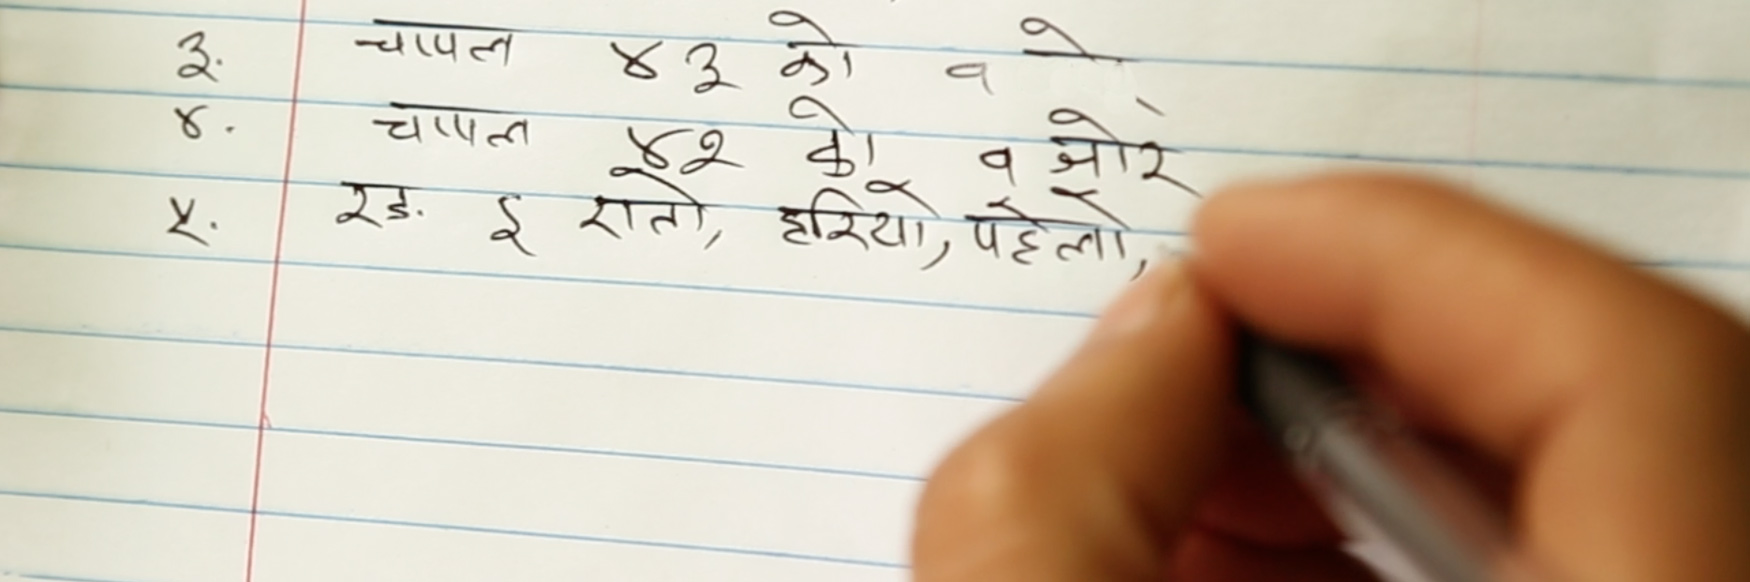 ३. चापल ४३ को व
४. चापल ४२ को व जोर
५. रङ. ई रातो, हरियो, पहेलो,